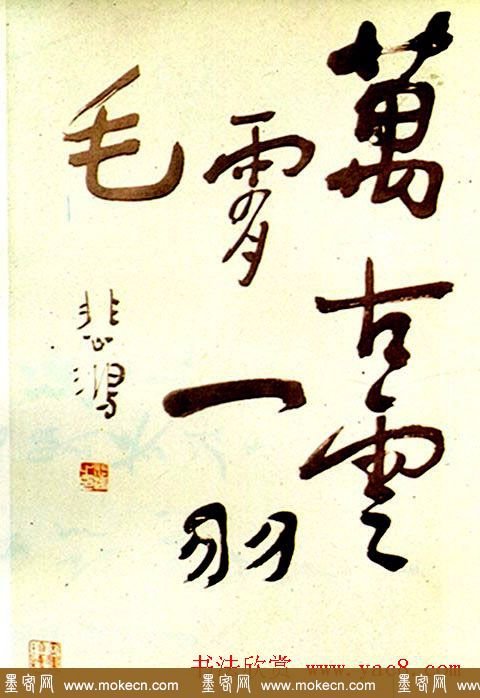 萬古雲
霄一羽
毛
悲鴻
书法欣赏 www.yac8.com
墨密网 www.mokecn.com 墨密网 www.mokecn.com 墨密网